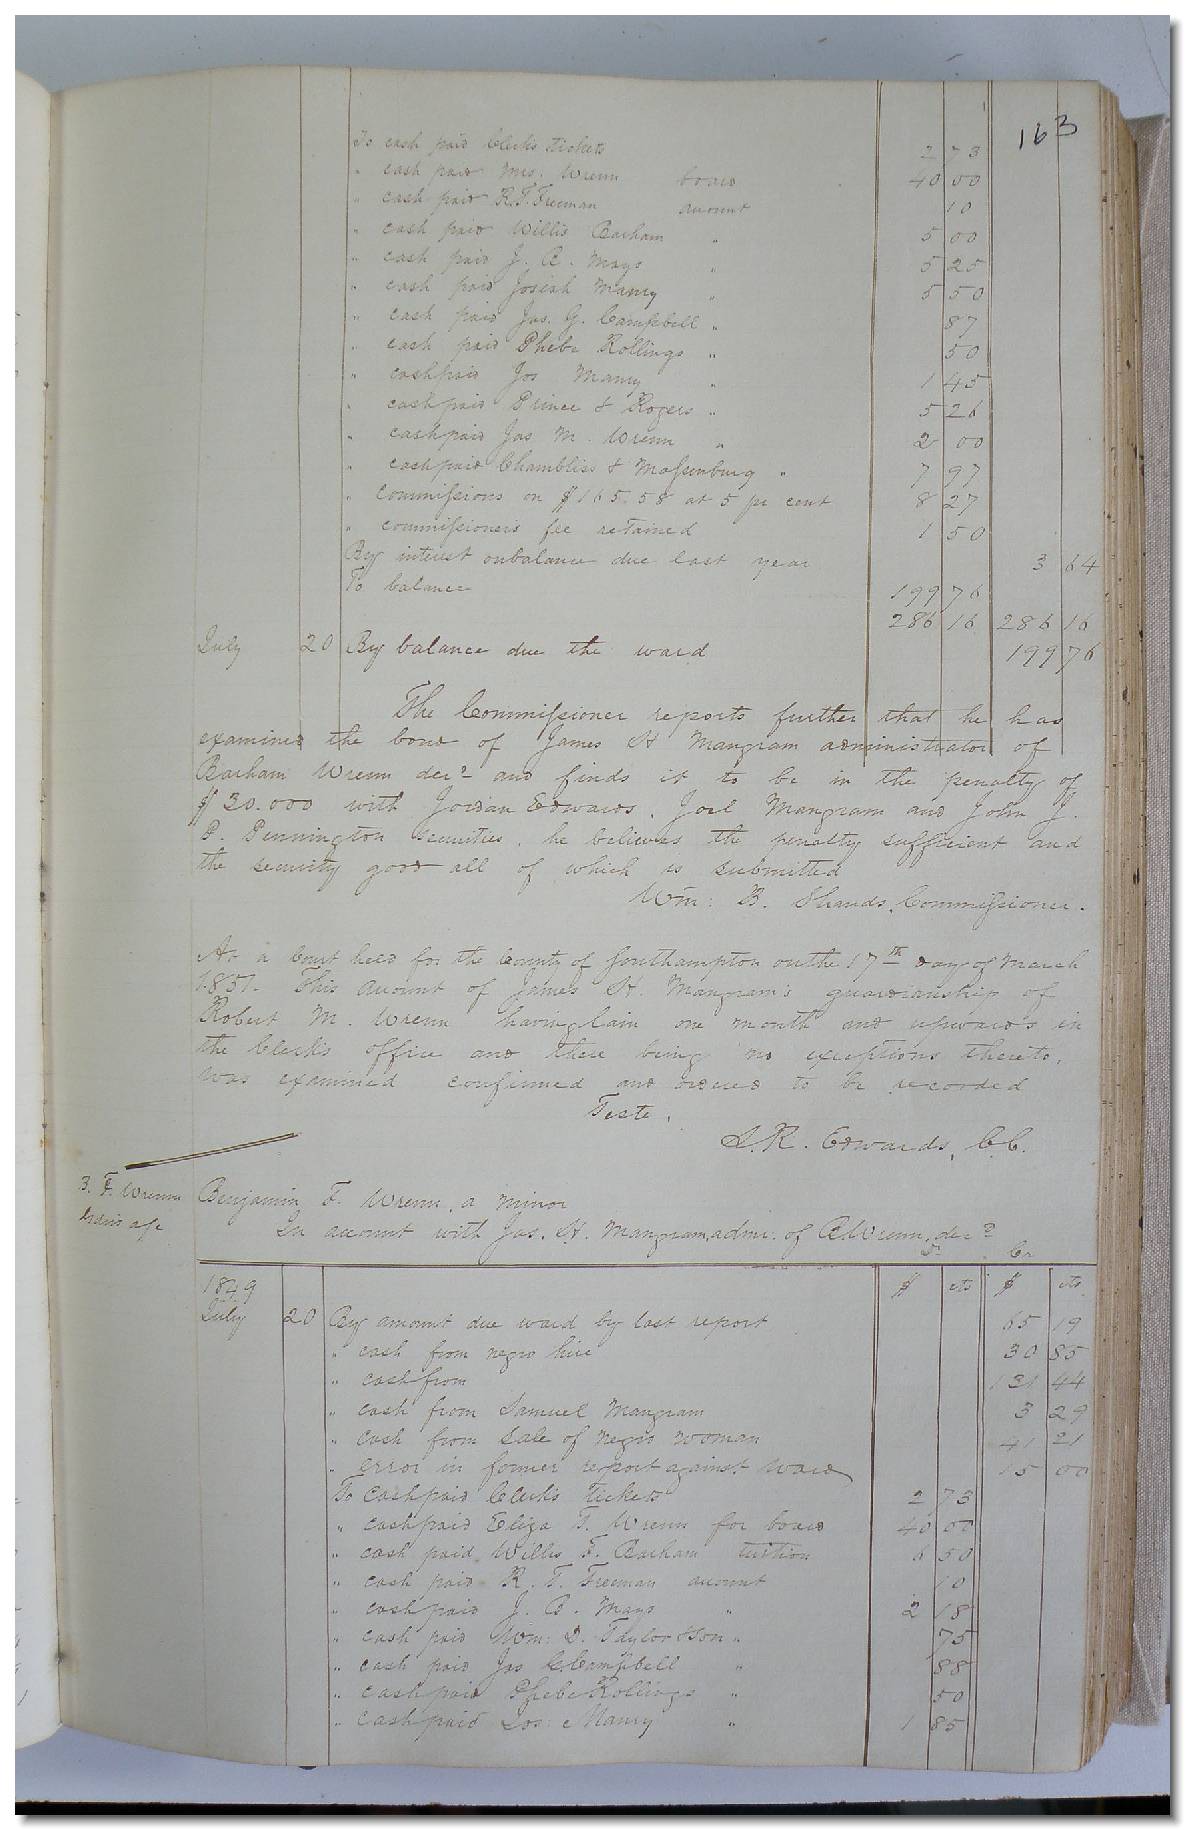 163
To cash paid Clerks tickets 2 73
" cash paid Mrs. Wrenn board 40 00
" cash paid R. T. Freeman account 10
" cash paid Willis Barham " 5 00
" cash paid J. B. Mays " 5 25
" cash paid Josiah Mancy " 5 50
" cash paid Jas. G. Campbell " 87
" cash paid Phebe Rollings " 50
" cash paid Jos Mancy " 1 45
" cash paid Prince & Rogers " 5 26
" cash paid Jas M. Wrenn " 2 00
" cash paid Chambliss & Massenburg " 7 97
" commissions on $165.58 at 5 pr cent 8 27
" commissioners fee retained 1 50
By interest on balance due last year 3 64
To balance 199 76
286 16 286 16
July 20 By balance due the ward 199 76
The Commissioner reports further that he has
examined the bond of James H Mangram administrator of
Barham Wrenn decd and finds it to be in the penalty of
$30.000 with Jordan Edwards, Joel Mangram and John J.
P. Pennington securities, he believes the penalty sufficient and
the security good all of which is submitted
Wm: B. Shands, Commissioner.
At a Court held for the County of Southampton on the 17th day of March
1851. This account of James H. Mangram's guardianship of
Robert M. Wrenn having lain one month and upwards in
the Clerks office and there being no exceptions thereto,
was examined confirmed and ordered to be recorded
Teste,
L. R. Edwards, C.C.
B. F. Wrenn
Benjamin F. Wrenn, a minor
In account with Jas. H. Mangram, admr. of B Wrenn, decd
Dr Cr
1849 $ cts $ cts
July 20 By amount due ward by last report 65 19
" cash from negro hire 30 85
" cash from 131 44
" cash from Samuel Mangram 3 29
" cash from sale of negro woman 41 21
" error in former report against ward 15 00
To cash paid Clerks tickets 2 73
" cash paid Eliza T. Wrenn for board 40 00
" cash paid Willis F. Barham tuition 6 50
" cash paid R. T. Freeman account 10
" cash paid J. B. Mays " 2 18
" cash paid Wm: D. Taylor & Son " 75
" cash paid Jas G. Campbell " 88
" cash paid Phebe Rollings " 50
" cash paid Jos: Mancy " 1 85